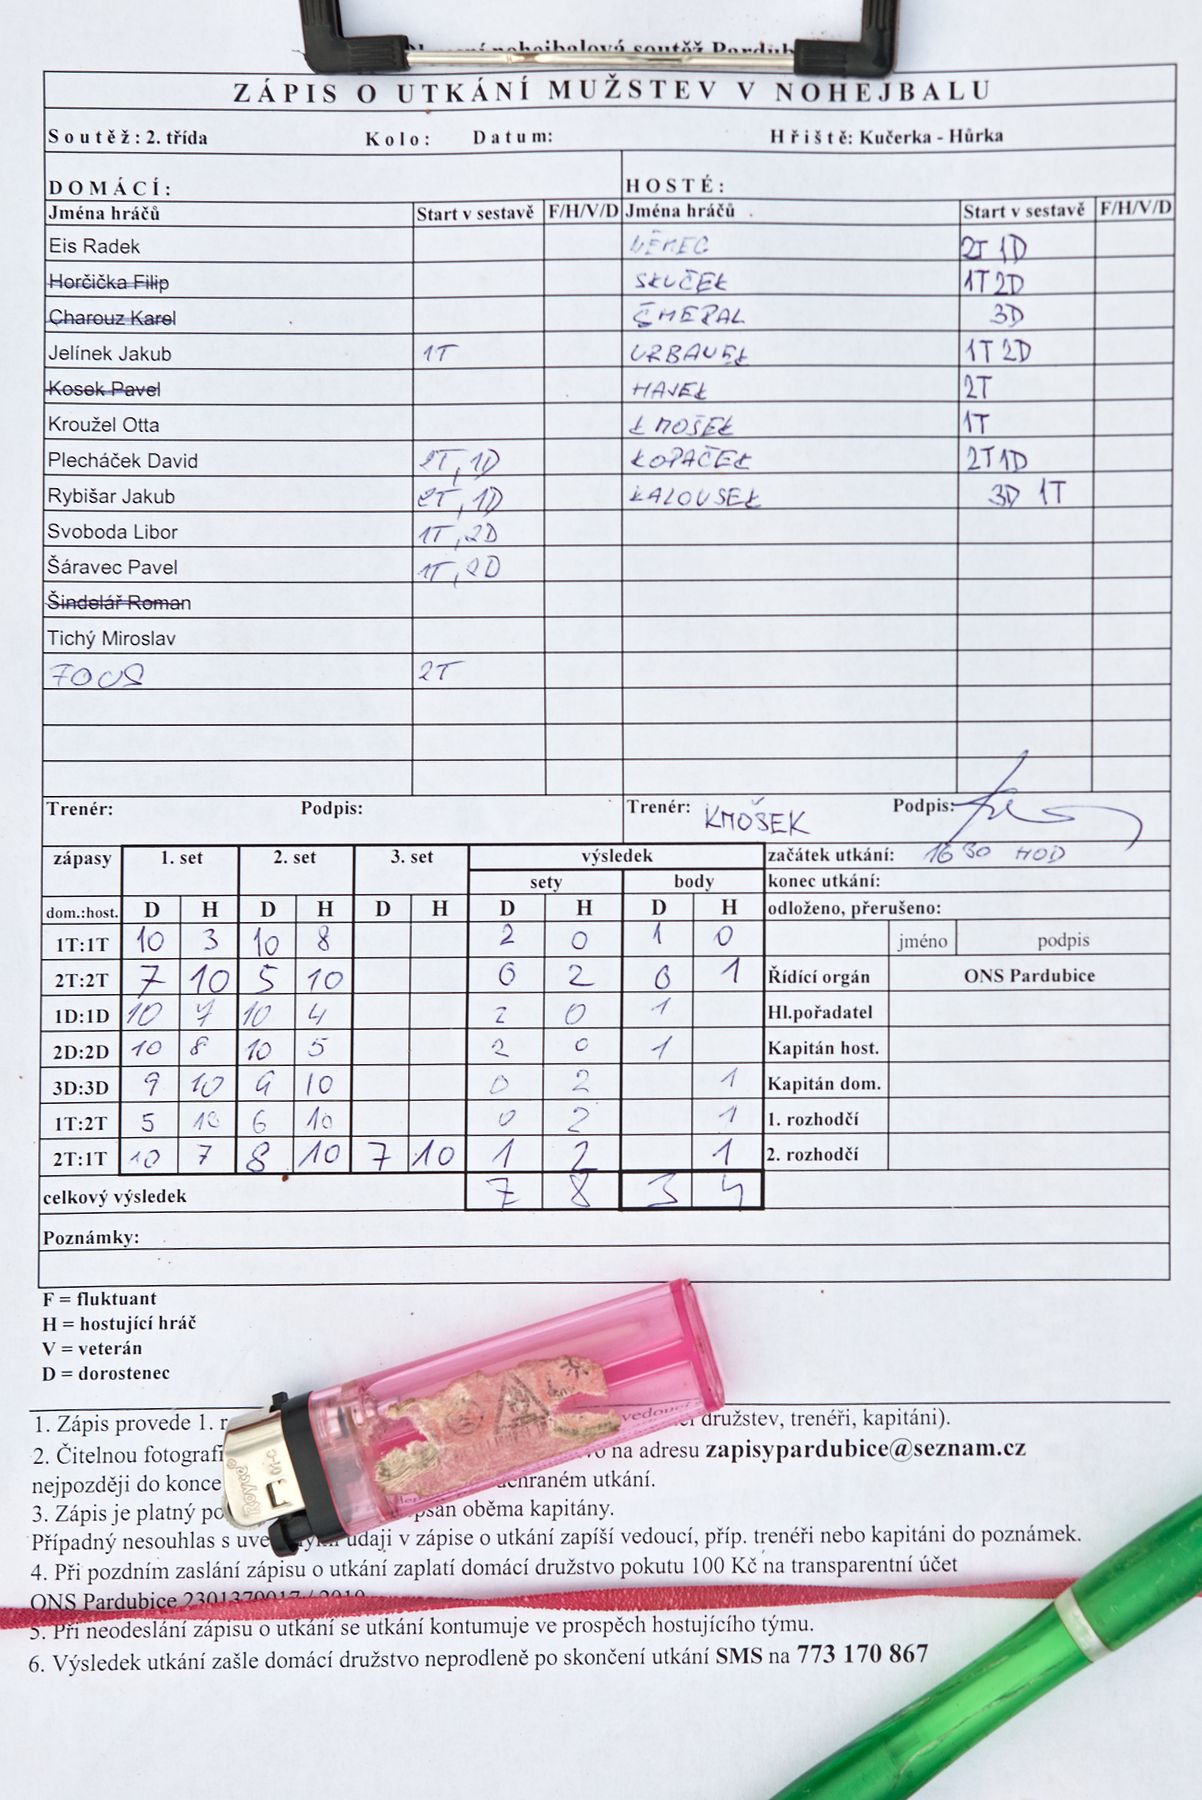 ZÁPIS O UTKÁNÍ MUŽSTEV V NOHEJBALU
Soutěž: 2. třída Kolo: Datum: Hřiště: Kučerka - Hůrka
DOMÁCÍ: HOSTÉ:
Jména hráčů Start v sestavě F/H/V/D Jména hráčů Start v sestavě F/H/V/D
Eis Radek NĚMEC 2T 1D
Horčička Filip SKUČEK 1T 2D
Charouz Karel ŠMERAL 3D
Jelínek Jakub 1T URBANEK 1T 2D
Kosek Pavel HAJEK 2T
Kroužel Otta KMOŠEK 1T
Plecháček David 2T, 1D KOPAČEK 2T 1D
Rybišar Jakub 2T, 1D KALOUSEK 3D 1T
Svoboda Libor 1T, 2D
Šáravec Pavel 1T, 2D
Šindelář Roman
Tichý Miroslav
2T
Trenér: Podpis: Trenér: KMOŠEK Podpis:
zápasy 1. set 2. set 3. set výsledek začátek utkání: 16 30 HOD
sety body konec utkání:
dom.:host. D H D H D H D H D H odloženo, přerušeno:
1T:1T 10 3 10 8 2 0 1 0 jméno podpis
2T:2T 7 10 5 10 0 2 0 1 Řídící orgán ONS Pardubice
1D:1D 10 7 10 4 2 0 1 Hl.pořadatel
2D:2D 10 8 10 5 2 0 1 Kapitán host.
3D:3D 9 10 9 10 0 2 1 Kapitán dom.
1T:2T 5 10 6 10 0 2 1 1. rozhodčí
2T:1T 10 7 8 10 7 10 1 2 1 2. rozhodčí
celkový výsledek 7 8 3 4
Poznámky:
F = fluktuant
H = hostující hráč
V = veterán
D = dorostenec
1. Zápis provede 1. družstev, trenéři, kapitáni).
2. Čitelnou na adresu zapisypardubice@seznam.cz
nejpozději do konce utkání.
3. Zápis je platný oběma kapitány.
Případný nesouhlas s údaji v zápise o utkání zapíší vedoucí, příp. trenéři nebo kapitáni do poznámek.
4. Při pozdním zaslání zápisu o utkání zaplatí domácí družstvo pokutu 100 Kč na transparentní účet
ONS Pardubice
5. Při neodeslání zápisu o utkání se utkání kontumuje ve prospěch hostujícího týmu.
6. Výsledek utkání zašle domácí družstvo neprodleně po skončení utkání SMS na 773 170 867